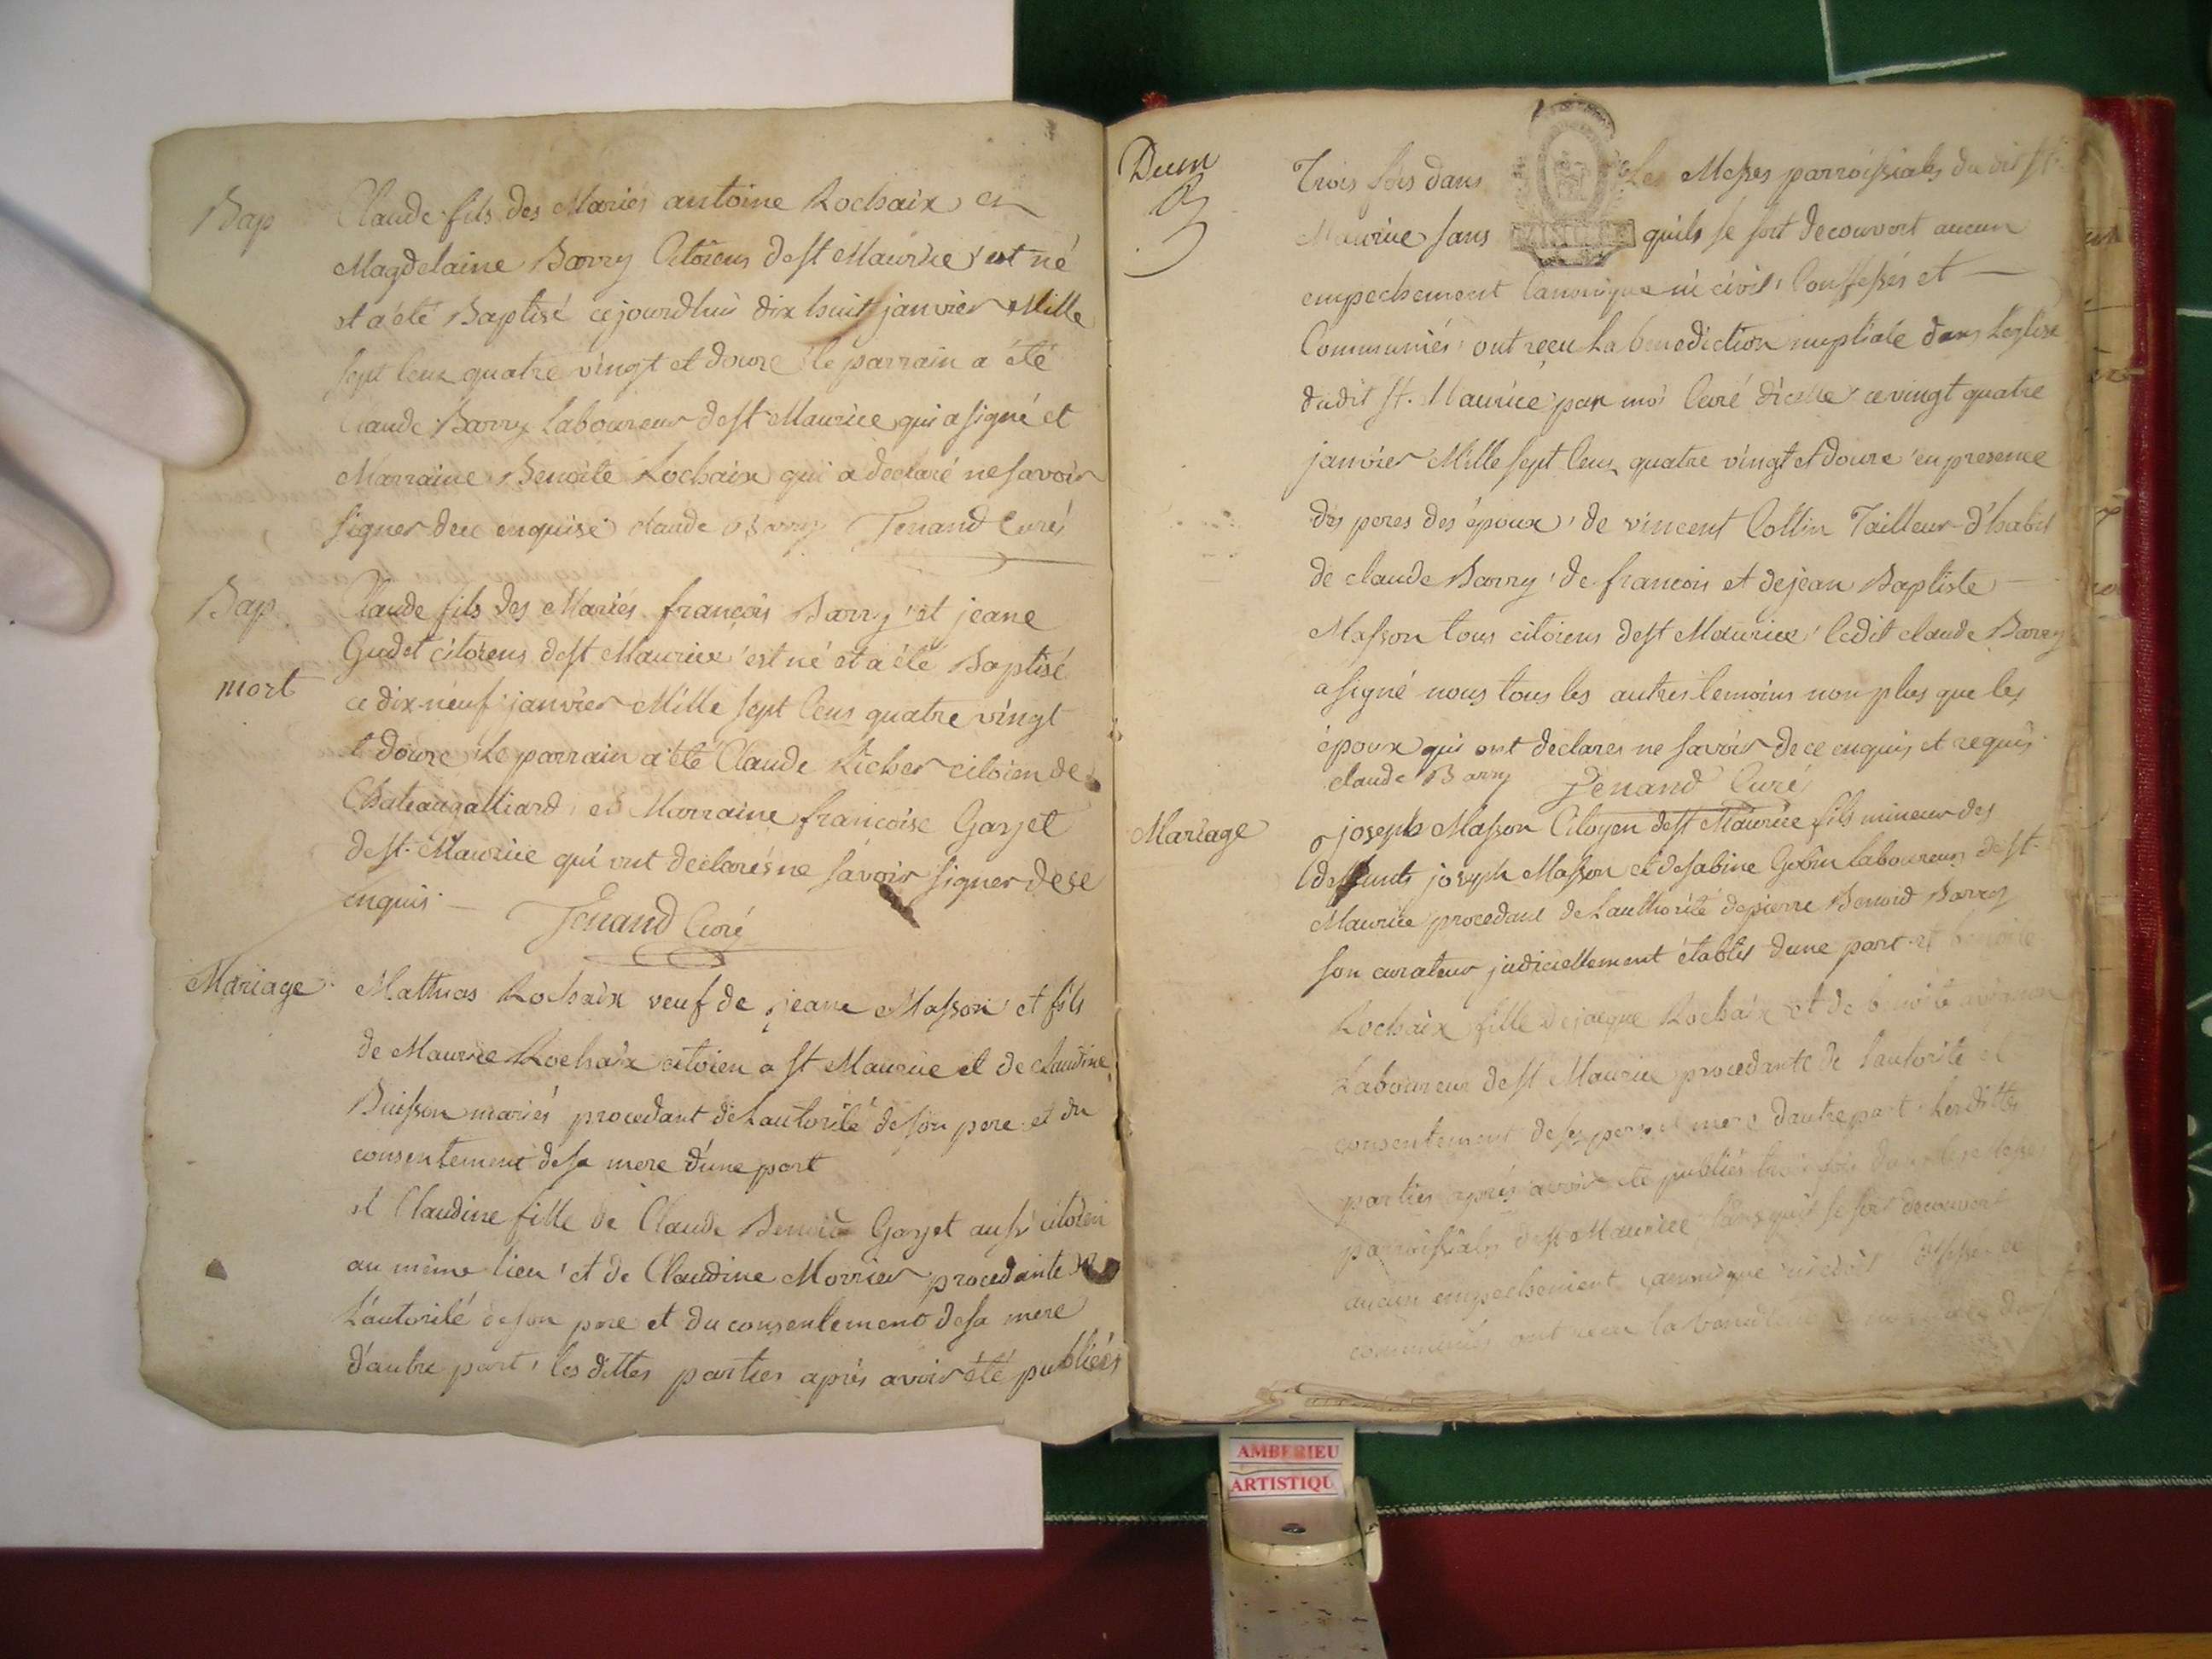 Bap
Claude fils des Mariés antoine Rochaix et
Magdelaine Barry Citoiens de st Maurice est né
et a été Baptisé ce jourdhui dix huit janvier Mille
sept Cens quatre vingt et douze le parrain a été
Claude Barry Laboureur de st Maurice qui a signé et
Marraine Benoite Rochaix qui a declaré ne savoir
signer de ce enquise claude Barry Tenand Curé
Bap
mort
Claude fils des Mariés françois Barry et jeane
Gudet citoiens de st Maurice est né et a été Baptisé
ce dix neuf janvier Mille sept Cens quatre vingt
et douze le parrain a été Claude Richer citoien de
Chateaugalliard et Marraine francoise Garjet
de st Maurice qui ont declarés ne savoir signer de ce
enquis
Tenand Curé
Mariage
Mathias Rochaix veuf de jeane Masson et fils
de Maurice Rochaix citoien a st Maurice et de claudine
Buisson mariés procedant de Lautorité de son pere et du
consentement de sa mere d'une part
et Claudine fille de Claude Benoid Garjet aussi citoien
au même lieu et de Claudine Morrier procedante de
L'autorité de son pere et du consentement de sa mere
d'autre part, les dittes parties après avoir été publiées
Dum
Trois fois dans Les Messes parroissiales du dit st
Maurice sans quils se soit decouvert aucun
empechement Canonique ni civil, Confessés et
Communiés ont reçu La benediction nuptiale dans Leglise
dudit st. Maurice par moi Curé d'icelle ce vingt quatre
janvier Mille sept Cens quatre vingt et douze en presence
des peres des époux, de vincent Collin Tailleur d'habit
de claude Barry, de francois et de jean Baptiste
Masson tous citoiens de st Maurice, ledit claude Barry
a signé nous tous les autres temoins non plus que les
époux qui ont declarés ne savoir de ce enquis et requis
claude Barry Tenand Curé
Mariage
joseph Masson Citoyen de st Maurice fils mineur des
deffunts joseph Masson et de sabine Gobin laboureurs de st
Maurice procedant de Lauthorité de pierre Benoid Barry
son curateur judiciellement établis dune part et benoite
Rochaix fille de jacque Rochaix et de benoite
Laboureur de st Maurice procedante de l'autorité et
consentement de ses pere et mere dautre part, Les dittes
parties après avoir été publiés trois fois dans les Messes
parroissiales de st Maurice sans quil se soit decouvert
aucun empechement canonique ni civil
communiés ont recu la benediction nuptiale dans
AMBERIEU
ARTISTIQU